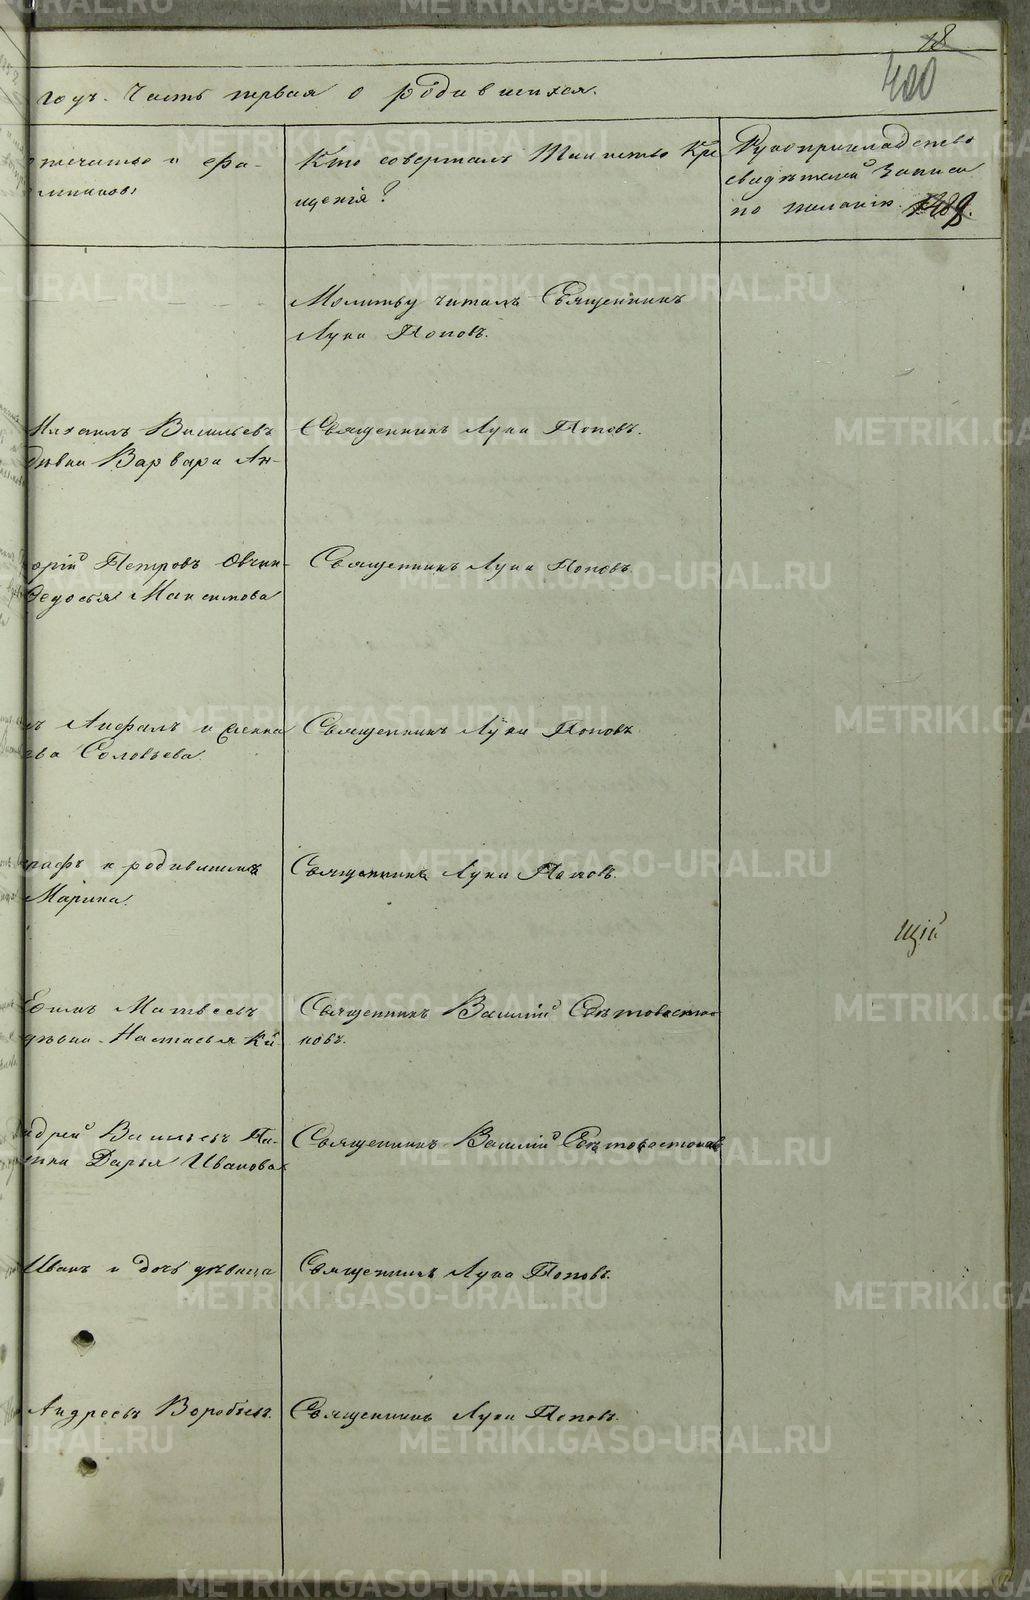 18
400
годъ. Часть первая о родившихся.
отчество и фа-
Кто совершалъ Таинство Кре
щенія?
Рукоприкладство
свидѣтелей записи
по желанію.
Молитву читалъ Священникъ
Лука Поповъ.
Михаилъ Васильевъ
дѣвка Варвара Ан-
Священникъ Лука Поповъ.
орій Петровъ Овчин-
Ѳедосья Максимова
Священникъ Лука Поповъ.
ъ Анфалъ и Ѳекла
ева Соловьева.
Священникъ Лука Поповъ.
графъ и родившимся
Марина.
Священникъ Лука Поповъ.
щій
Ефимъ Матвеевъ
дѣвка Настасья Ки-
Священникъ Василій Свѣтовосто-
ковъ.
ндрей Васильевъ Па-
Дарья Иванова
Священникъ Василій Свѣтовостоковъ
Иванъ и дочь дѣвица
Священникъ Лука Поповъ.
Андреевъ Воробьевъ.
Священникъ Лука Поповъ.
METRIKI.GASO-URAL.RU